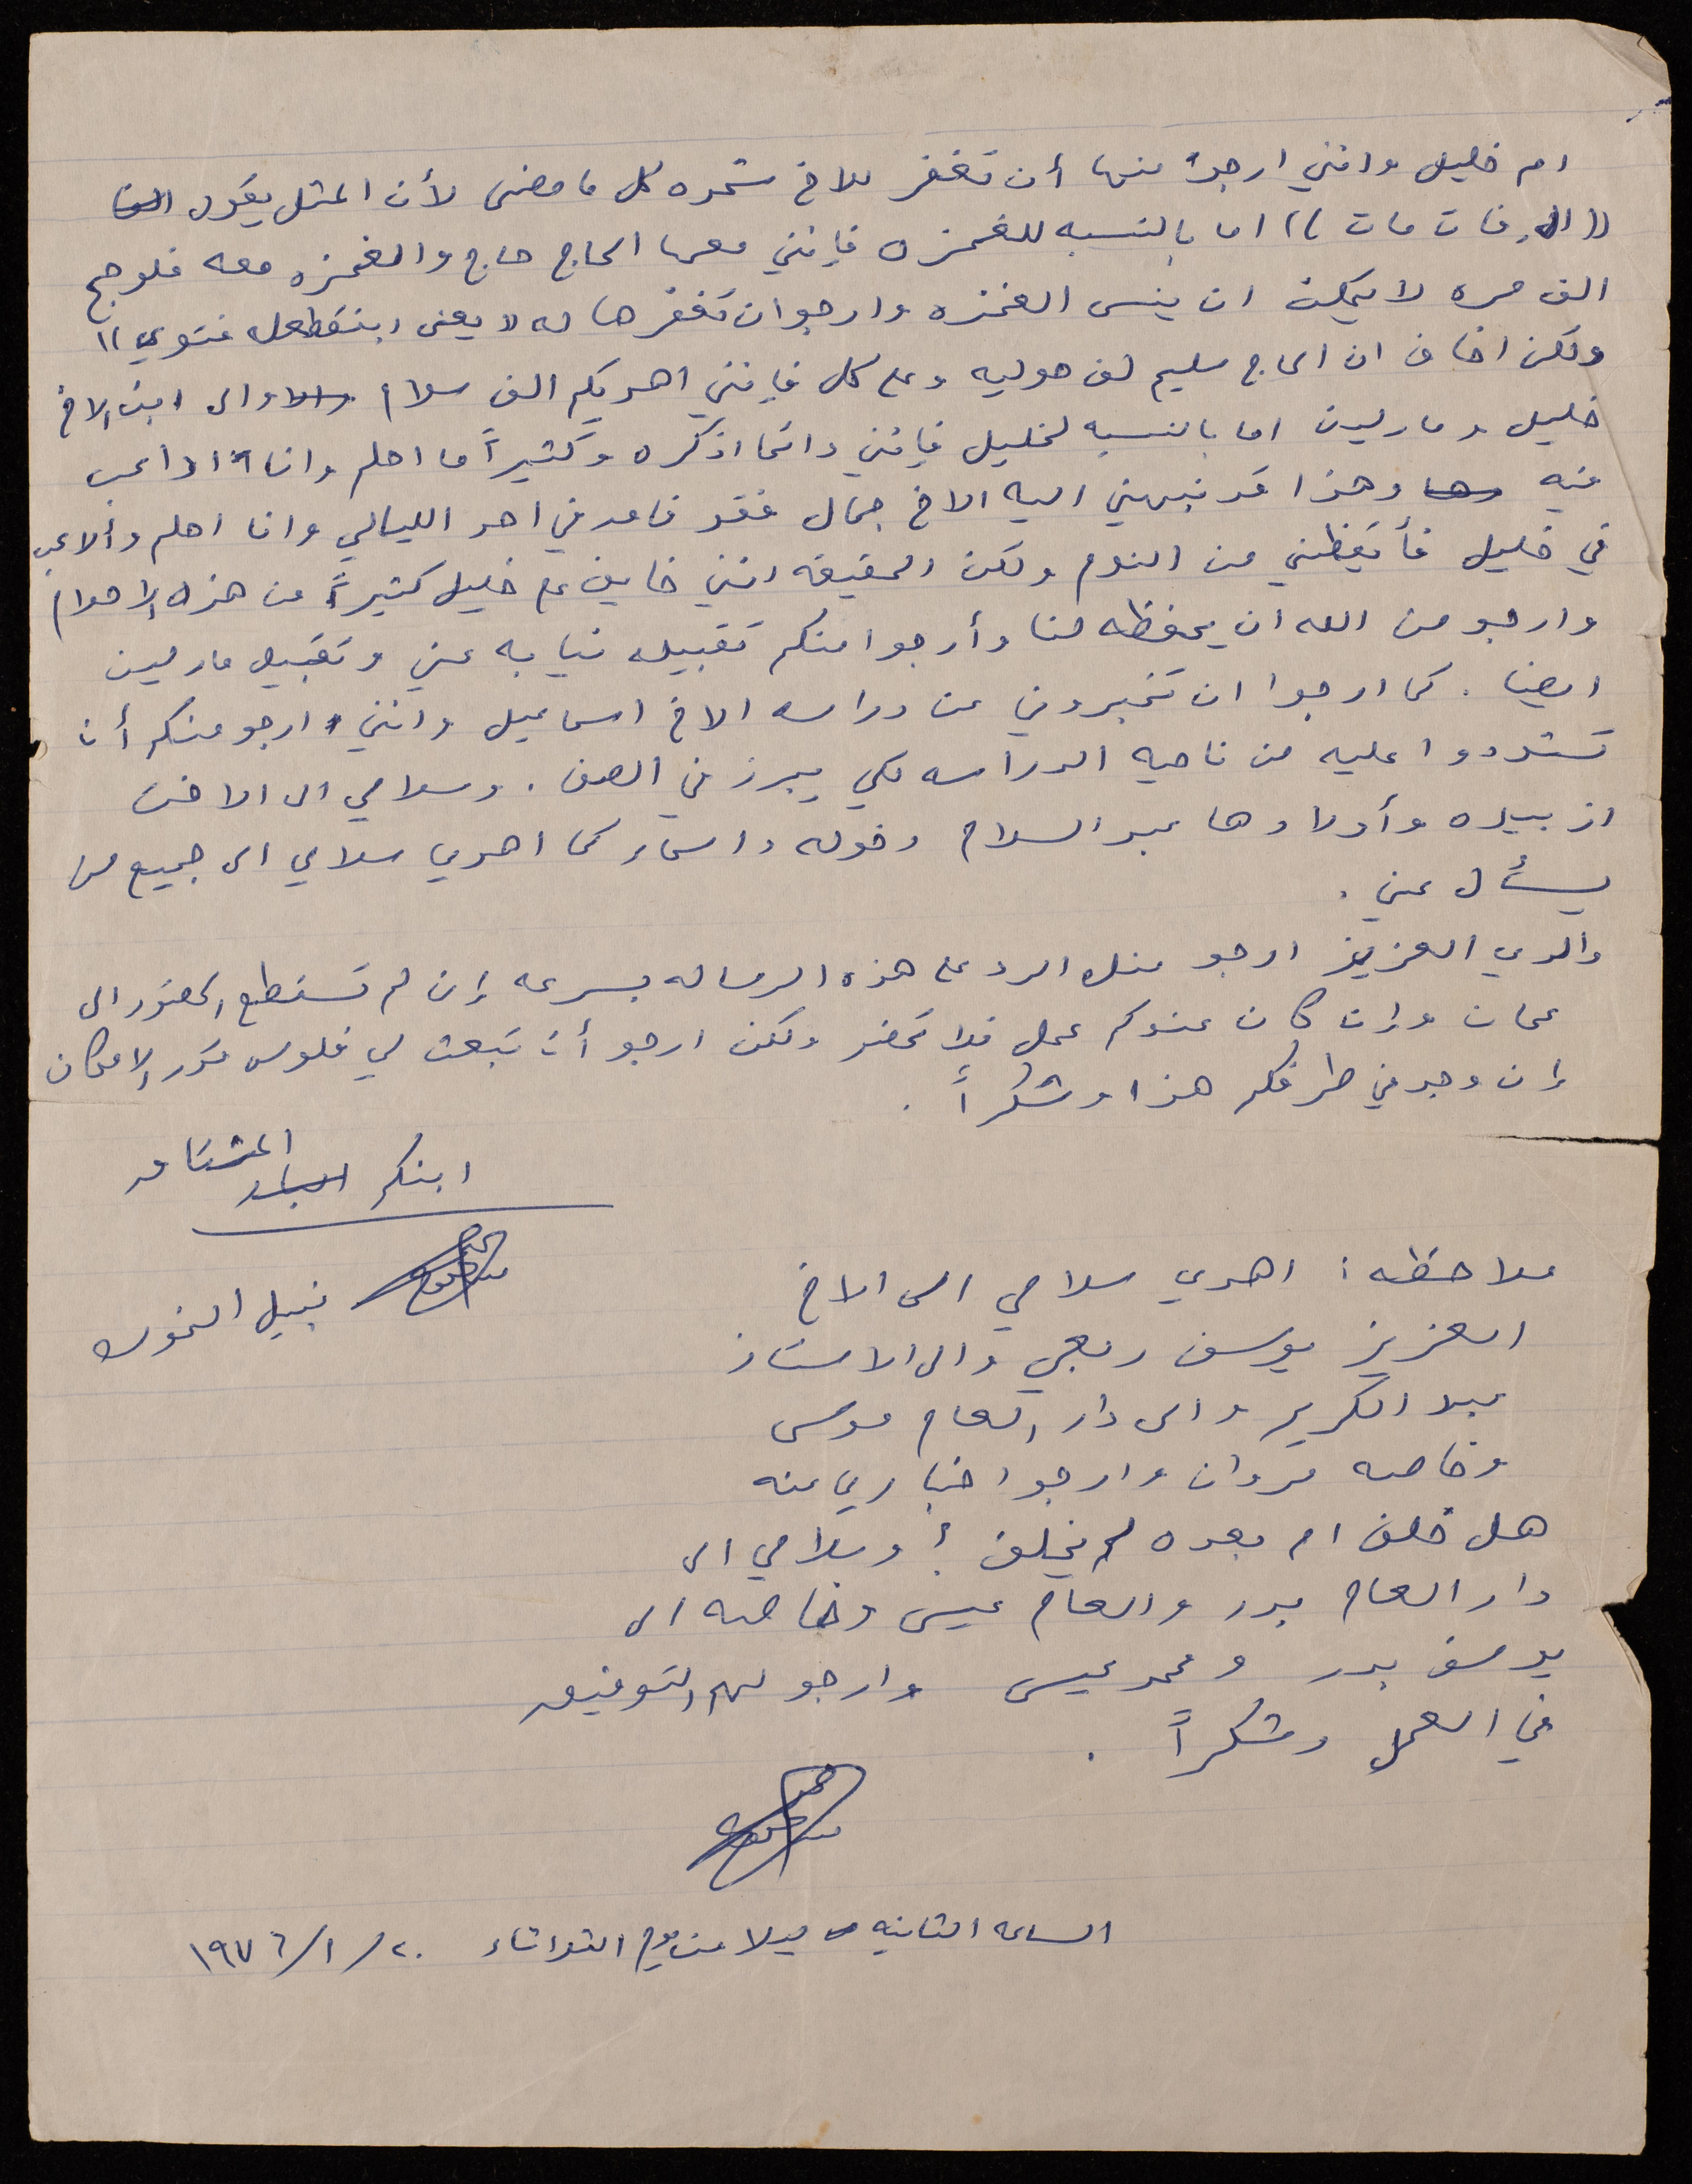 ام خليل وانني ارجوا منها أن تغفر للاخ شحده كل ما مضى لأن المثل يقول
((اللي فات مات)) اما بالنسبه للغمزه فإنني معها الحاج حاج والغمزه معه فلو حج
الف مره لا يمكن ان ينسى الغمزه وارجو ان تغفرها له لا يعني ابنقطعله فتوى))
ولكن اخاف ان الحاج سليم لف حوليه وعلى كل فإنني اهديكم الف سلام والى ابن الاخ
خليل ومارلين اما بالنسبه لخليل فإنني دائما اذكره وكثيراً ما احلم وانا اداعب
فيه وهذا قد نبهني اليه الاخ جمال فقد قام في احد الليالي وانا احلم وألاعب
في خليل فأيقظني من النوم ولكن الحقيقه انني خايف على خليل كثيراً من هذه الاحلام
وارجو من الله ان يحفظه لنا وأرجوا منكم تقبيله نيابه عني وتقبيل مارلين
ايضا. كما ارجوا ان تخبروني عن دراسه الاخ اسماعيل وانني ارجو منكم أن
تشددوا عليه من ناحيه الدراسه لكي يبرز في الصف. وسلامي الى الاخت
ازبيده وأولادها عبد السلام وخوله واسماء كما اهدي سلامي الى جميع من
يسأل عني.
والدي العزيز ارجو منك الرد على هذه الرساله بسرعه إن لم تستطع الحضور الى
عمان وإن كان عندكم عمل فلا تحضر ولكن ارجو أن تبعث لي فلوس قدر الامكان
إن وجد في طرفكم هذا وشكراً.
ابنكم المشتاق
نبيل
ملاحظه: اهدي سلامي الى الاخ
العزيز يوسف ربعي والى الاستاذ
عبد الكريم والى دار العام موسى
وخاصه مروان وارجوا خباري عنه
هل خلف ام بعده لم يخلف؟ وسلامي الى
دار العام بدر والعام عيسى وخاصه الى
يوسف بدر ومحمد عيسى وارجو لهم التوفيق
في العمل وشكراً.
الساعه الثانيه ليلا من يوم الثلاثاء ٢٠/١/١٩٧٦